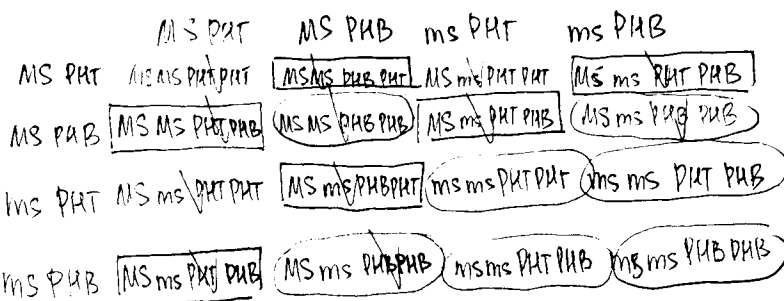 MS PHT MS PHB ms PHT ms PHB
MS PHT MS MS PHT PHT MS MS PHB PHT MS ms PHT PHT MS ms PHT PHB
MS PHB MS MS PHT PHB MS MS PHB PHB MS ms PHT PHB MS ms PHB PHB
ms PHT MS ms PHT PHT MS ms PHB PHT ms ms PHT PHT ms ms PHT PHB
ms PHB MS ms PHT PHB MS ms PHB PHB ms ms PHT PHB ms ms PHB PHB